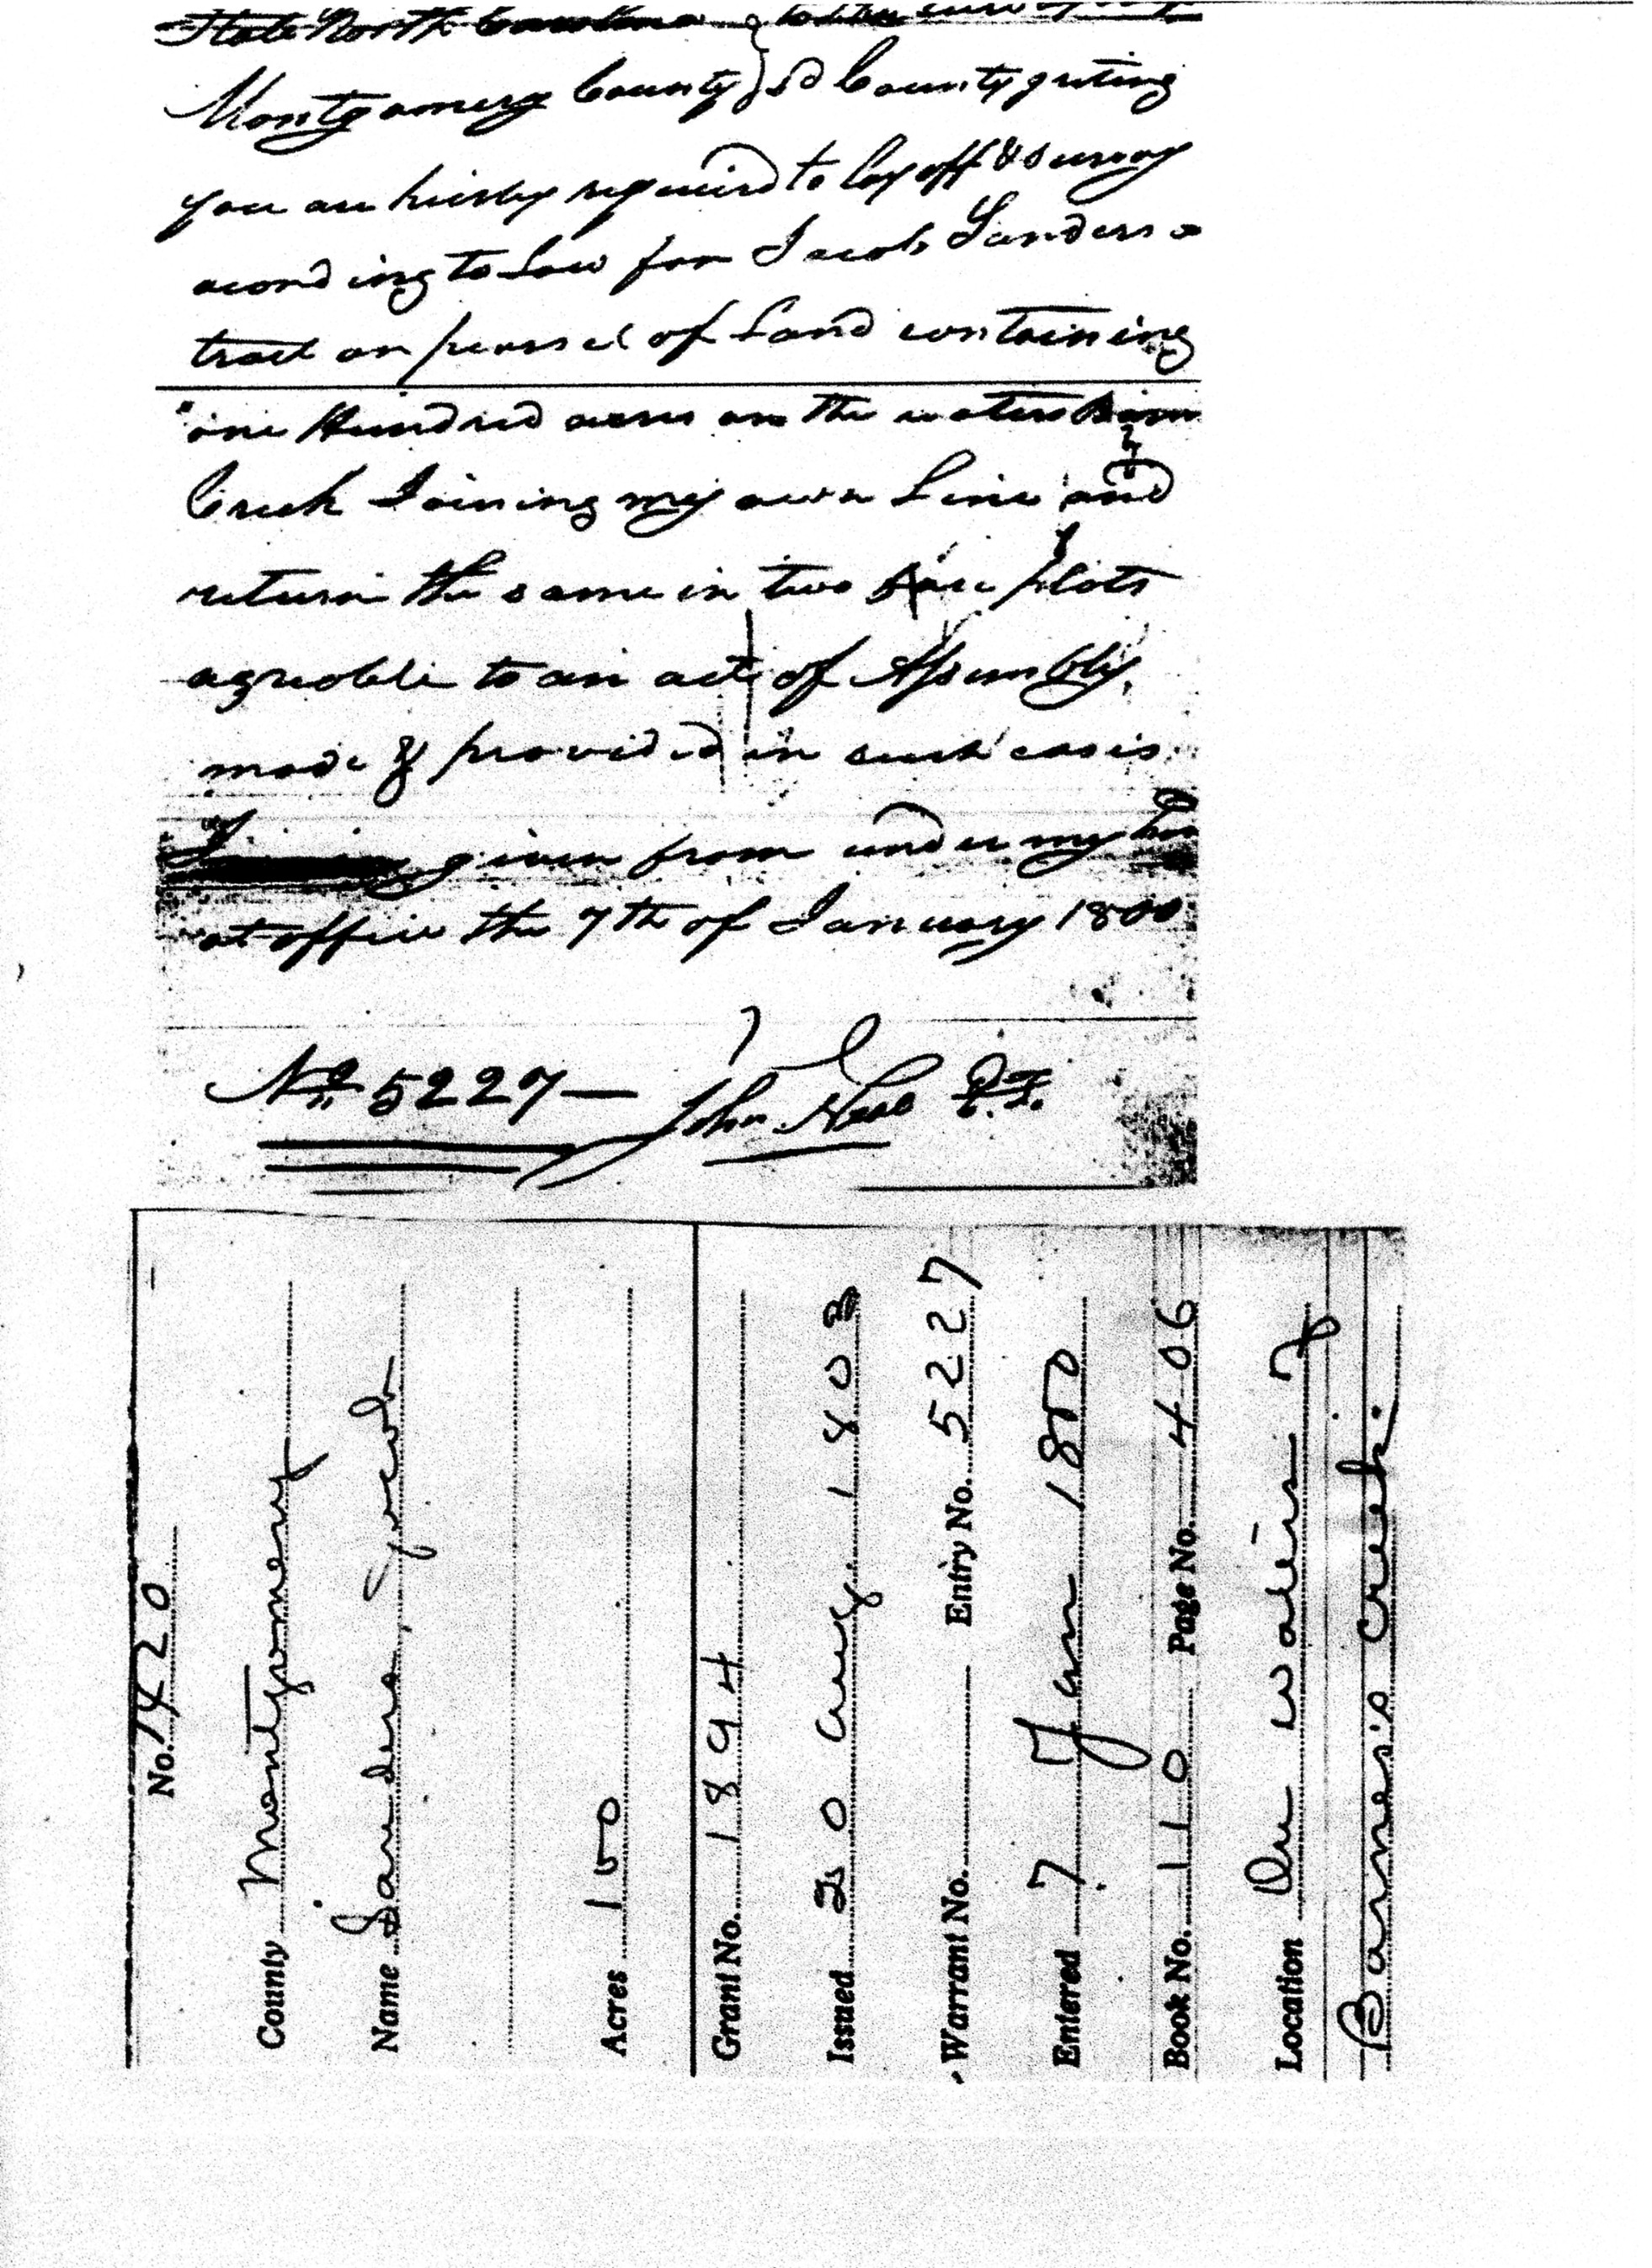 State North Carolina } to the surveyor of
Montgomery County } sd County greting
you are hereby required to lay off & survey
acording to Law for Jacob Sanders a
tract or persel of Land containing
one Hundred acres on the waters
Creek Joining my own Line and
return the same in two plots
agreable to an act of Assembly
made & provided in such cases
given from under my han
at office the 7th of January 1800
No 5227 — John
No. 1420
County Montgomery
Name Sanders, Jacob
Acres 100
Grant No. 1894
Issued 20 Aug. 1803
Warrant No. Entry No. 5227
Entered 7 Jan 1800
Book No. 110 Page No. 406
Location On waters of
Barnes's Creek.